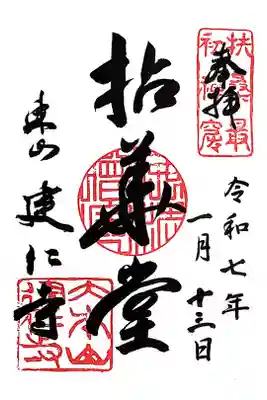 奉拝
令和七年
一月十三日
拈華堂
東山 建仁寺
扶桑最
初禅窟